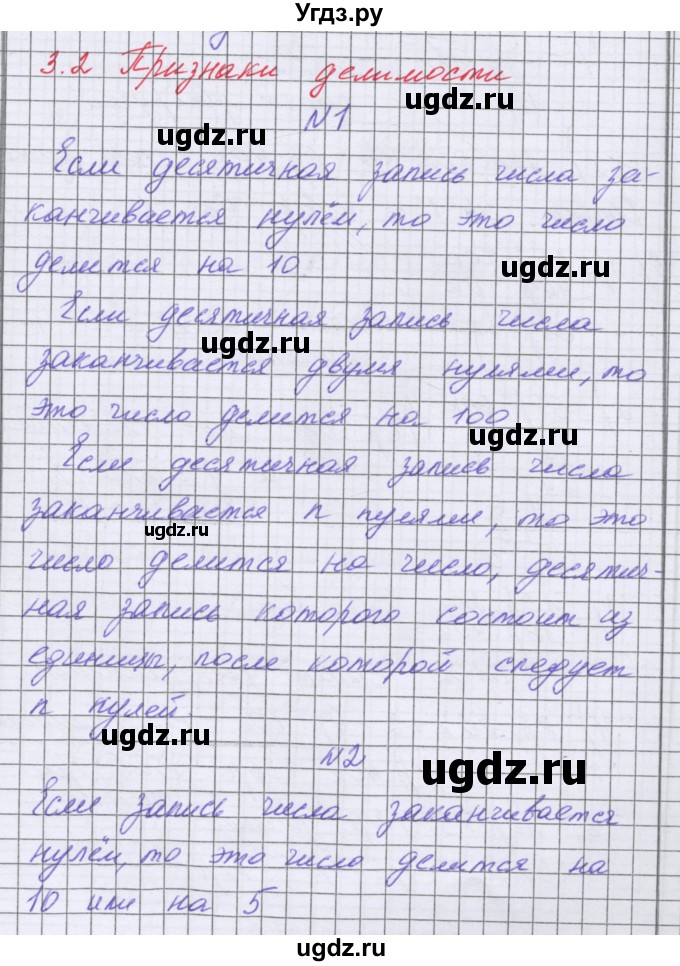 Угдз.ру
3.2 Признаки делимости
ugdz.ru
ugdz.ru
N1
Если десятичная запись числа за-
канчивается нулём, то это число
делится на 10
ugdz.ru
Если десятичная запись числа
ugdz.ru
заканчивается двумя нулями, то
это число делится на 100
ugdz.ru
Если десятичная запись числа
заканчивается n нулями, то это
ugdz.ru
число делится на число, десятич-
ная запись которого состоит из
единицы, после которой следует
n нулей.
ugdz.ru
N2
ugdz.ru
Если запись числа заканчивается
нулём, то это число делится на
10 или на 5
ugdz.ru